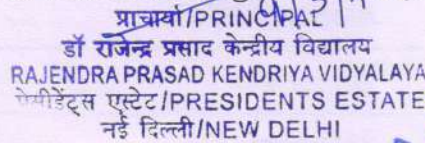 प्राचार्या/PRINCIPAL
डॉ राजेन्द्र प्रसाद केन्द्रीय विद्यालय
RAJENDRA PRASAD KENDRIYA VIDYALAYA
प्रेसीडेंट्स एस्टेट/PRESIDENTS ESTATE
नई दिल्ली/NEW DELHI